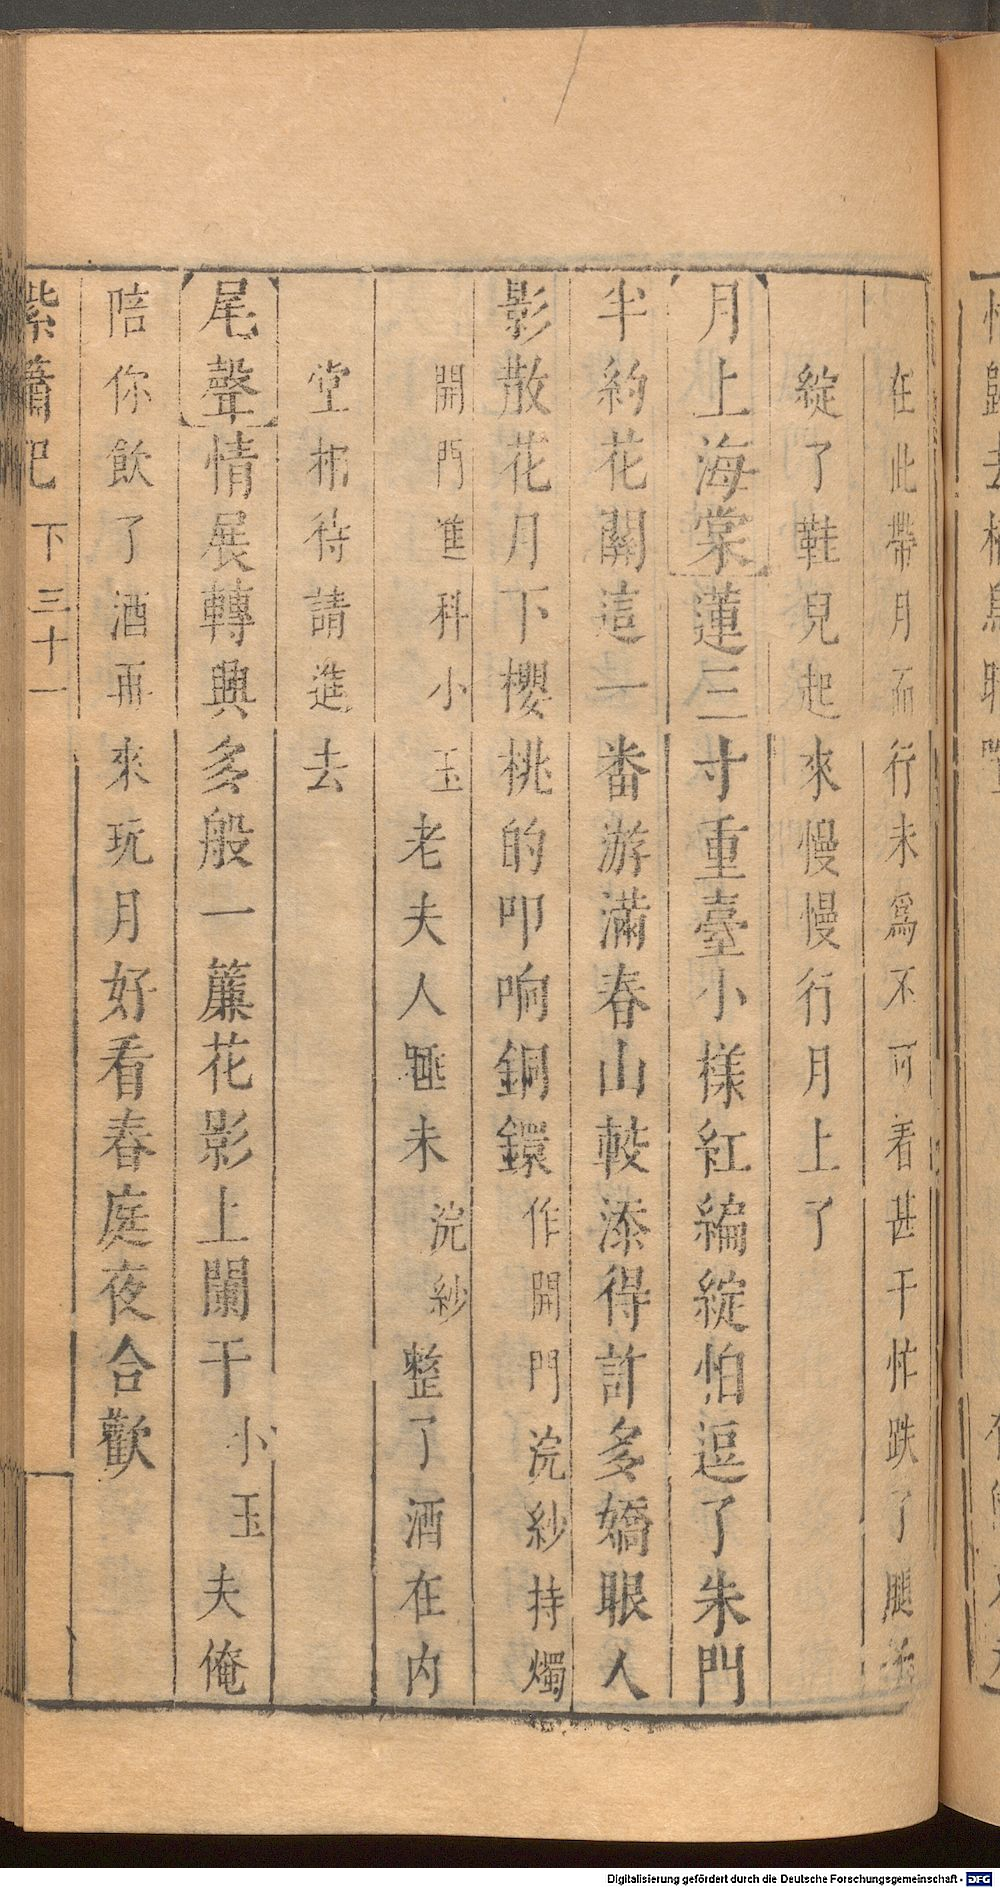 在此帶月而行未爲不可着甚干忙跌了腿
綻了鞋兒起來慢慢行月上了
月上海棠蓮三寸重臺小樣紅編綻怕逗了朱門
半約花闌這一番游滿春山較添得許多嬌眼人
影散花月下櫻桃的叩响銅鐶作開門浣紗持燭
開門進科小玉老夫人睡未浣紗整了酒在内
堂相待請進去
尾聲情展轉興多般一簾花影上闌干小玉夫俺
陪你飲了酒再來玩月好看春庭夜合歡
紫簫記 下 三十一
Digitalisierung gefördert durch die Deutsche Forschungsgemeinschaft - DFG